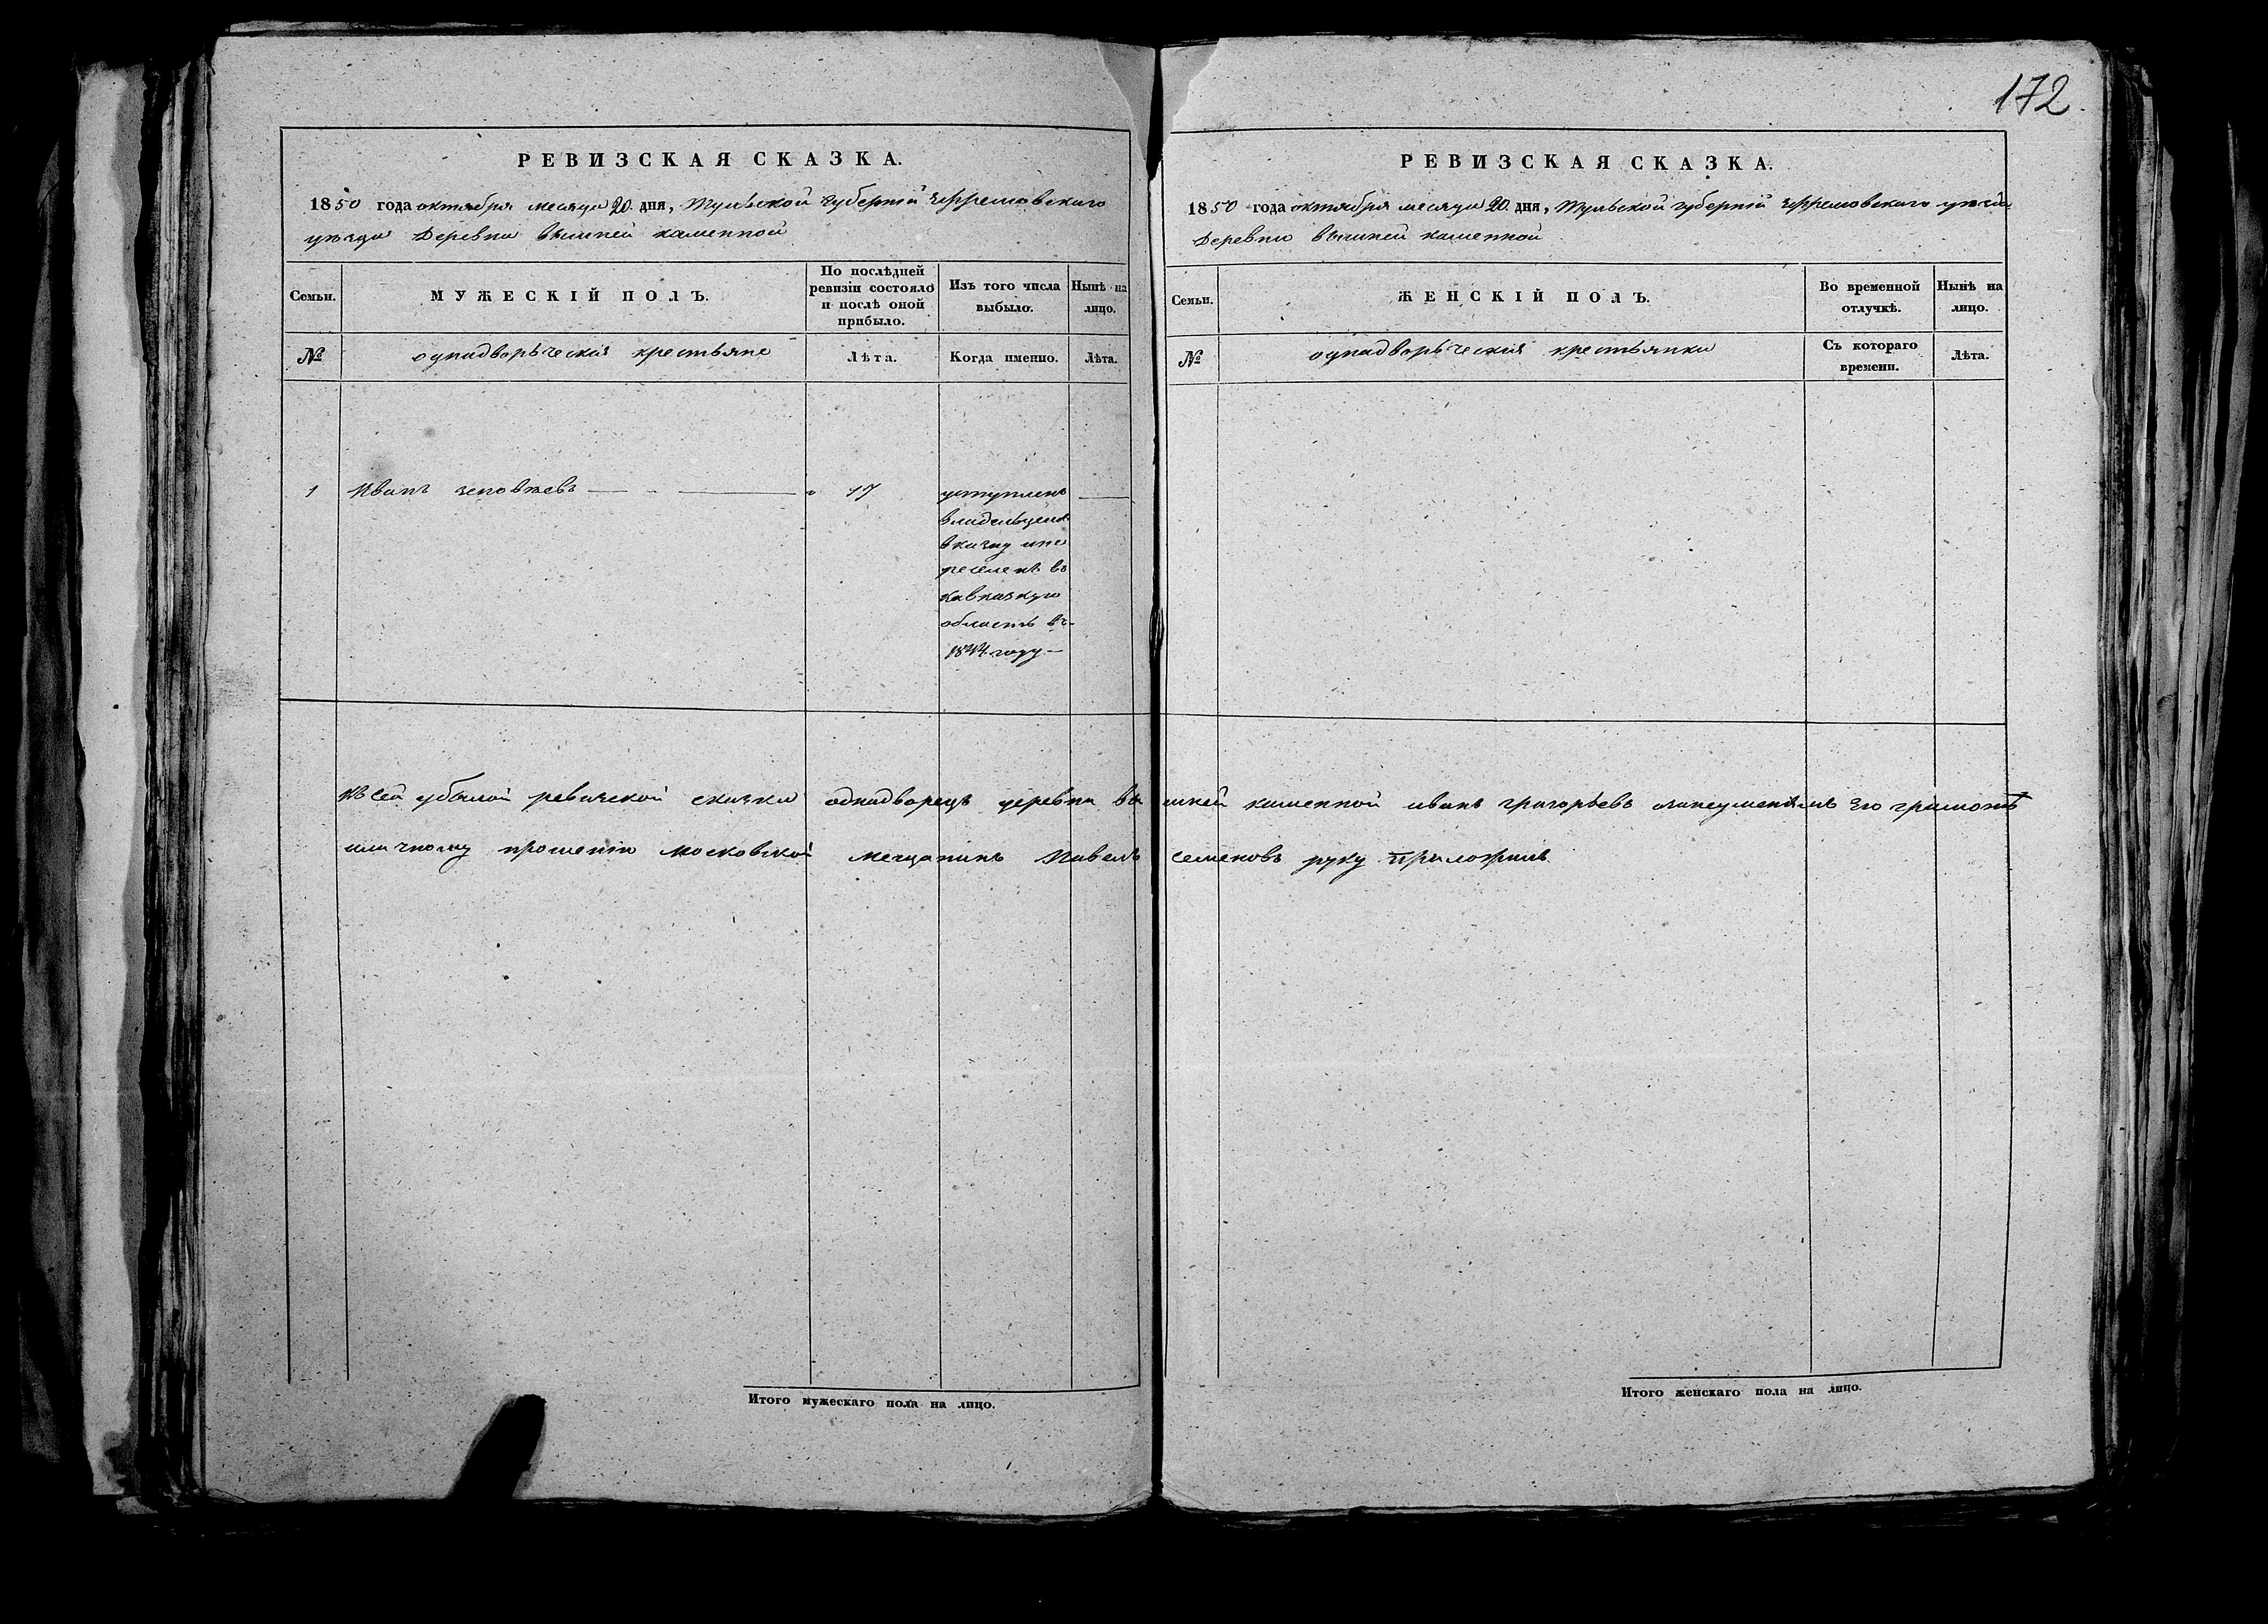 172
РЕВИЗСКАЯ СКАЗКА.
1850 года октября месяца 20 дня, Тульской губерній Эфремовскаго
уезда Деревни вышней каменной
Семьи.
МУЖЕСКІЙ ПОЛЪ.
По послѣдней ревизіи состояло и послѣ оной прибыло.
Изъ того числа выбыло.
Нынѣ на лицо.
№
однадворьческия крестьяне
Лѣта.
Когда именно.
Лѣта.
1 Иванъ зеновьевъ 17 уступленъ
владельцемъ
вказну ипе
реселенъ въ
кавказкую
область въ
1844 году
РЕВИЗСКАЯ СКАЗКА.
1850 года октября месяца 20 дня, Тульской губерній Эфремовскаго уезда
Деревни вышней каменной
Семьи.
ЖЕНСКІЙ ПОЛЪ.
Во временной отлучкѣ.
Нынѣ на лицо.
№
однадворьческия крестьянки
Съ котораго времени.
Лѣта.
Къ сей убылой ревизской сказки однадворецъ деревни вышней каменной иванъ григорьевъ азанеуменіемъ Эго грамотѣ
иличному прошенію Московской мещанинъ Павелъ Семеновъ руку приложилъ
Итого мужескаго пола на лицо.
Итого женскаго пола на лицо.